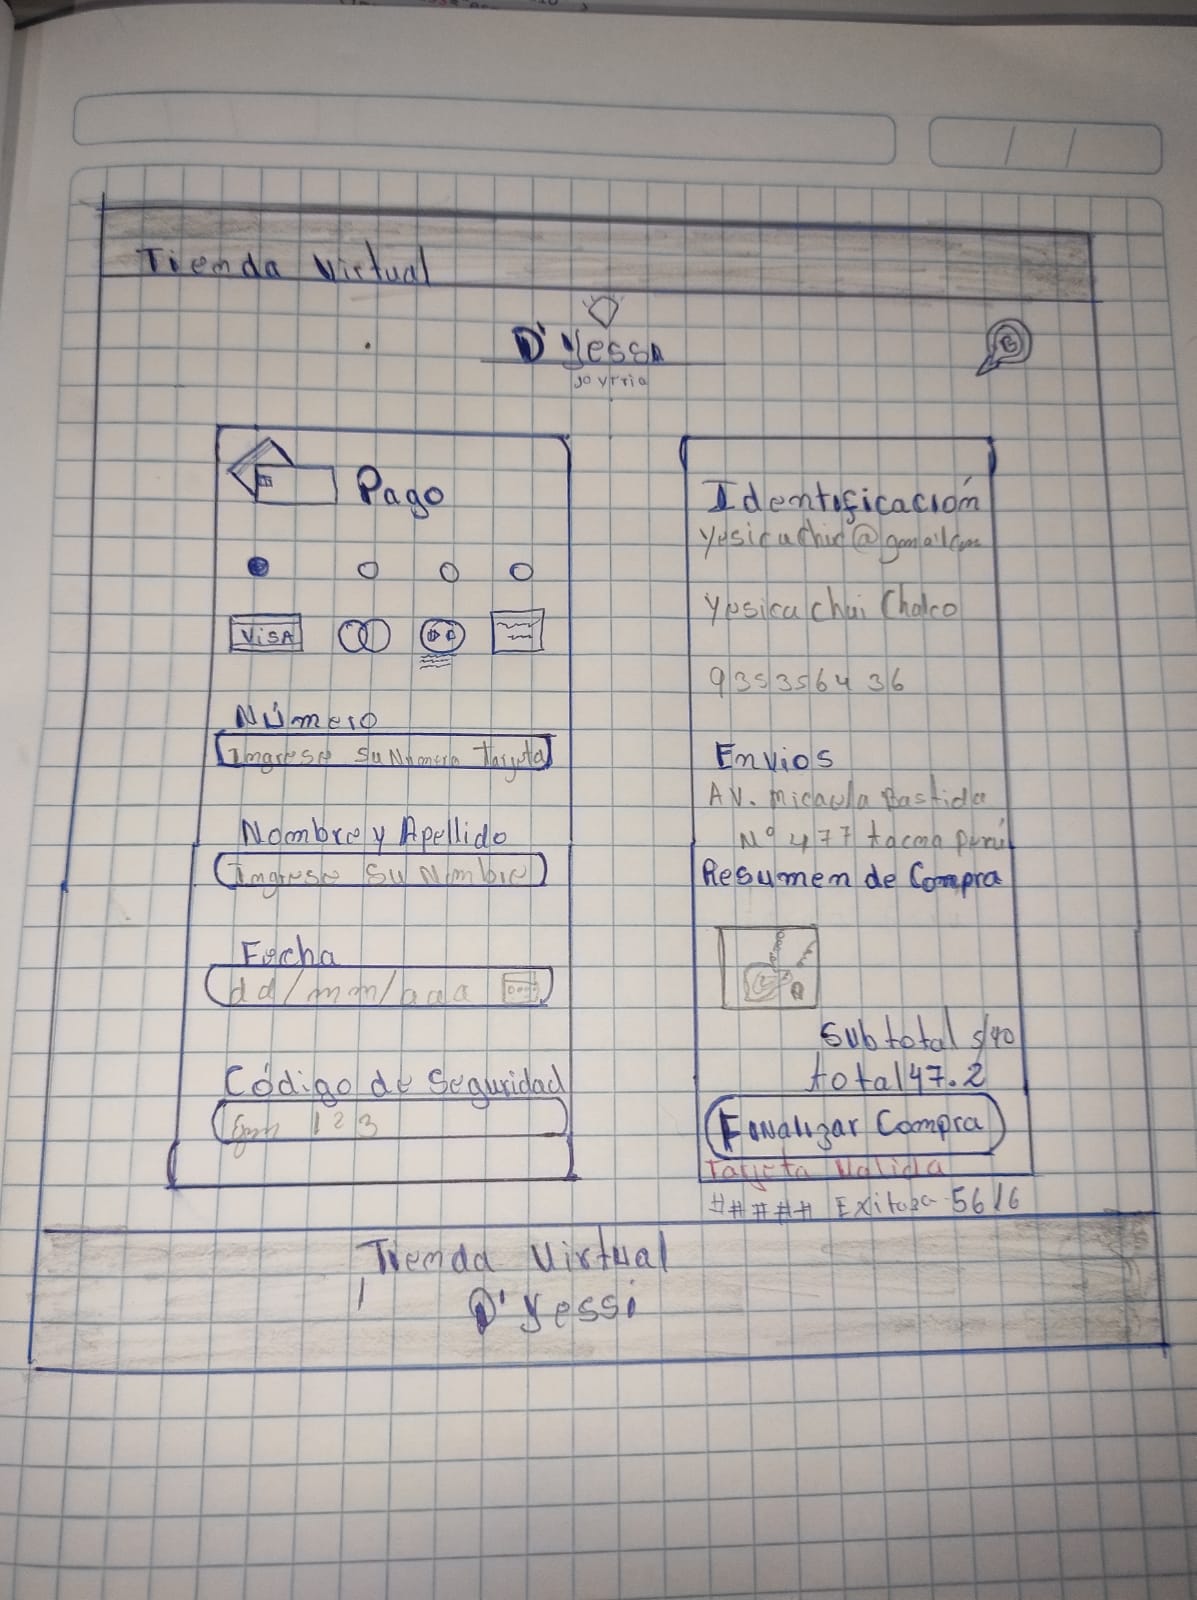 Tienda Virtual
D'Yessi
joyrria
Pago
VISA
Número
Ingrese su Número Tarjeta
Nombre y Apellido
Ingrese su Nombre
Fecha
dd/mm/aaa
Código de Seguridad
123
Identificación
Yesica Chui Chalco
935356436
Envios
AV. Micaela Bastida
Nº 477 tacna perú
Resumen de Compra
Subtotal s/40
total 47.2
Finalizar Compra
Tarjeta Valida
##### Exitosa 5616
Tienda Virtual
D'Yessi